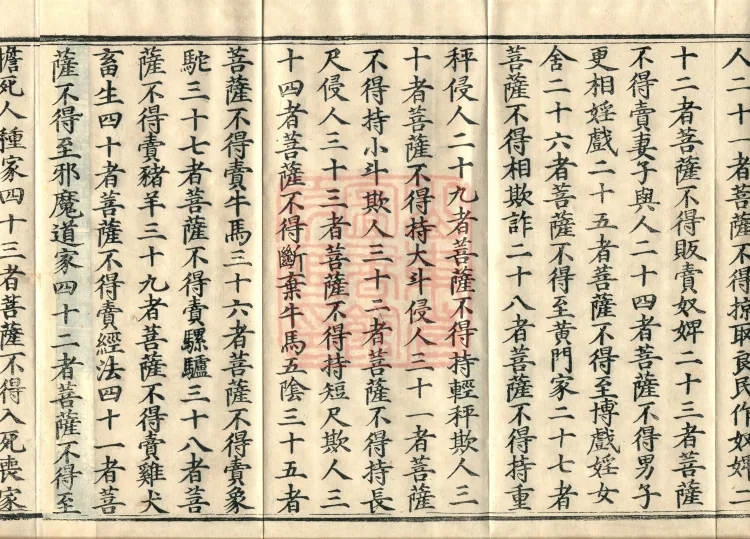 人二十一者菩薩不得掠取良民作奴婢二
十二者菩薩不得販賣奴婢二十三者菩薩
不得賣妻子與人二十四者菩薩不得男子
更相婬戲二十五者菩薩不得至博戲婬女
舍二十六者菩薩不得至黃門家二十七者
菩薩不得相欺詐二十八者菩薩不得持重
秤侵人二十九者菩薩不得持輕秤欺人三
十者菩薩不得持大斗侵人三十一者菩薩
不得持小斗欺人三十二者菩薩不得持長
尺侵人三十三者菩薩不得持短尺欺人三
十四者菩薩不得斷棄牛馬五陰三十五者
菩薩不得賣牛馬三十六者菩薩不得賣象
駝三十七者菩薩不得賣騾驢三十八者菩
薩不得賣豬羊三十九者菩薩不得賣雞犬
畜生四十者菩薩不得賣經法四十一者菩
薩不得至邪魔道家四十二者菩薩不得至
擔死人種家四十三者菩薩不得入死喪家